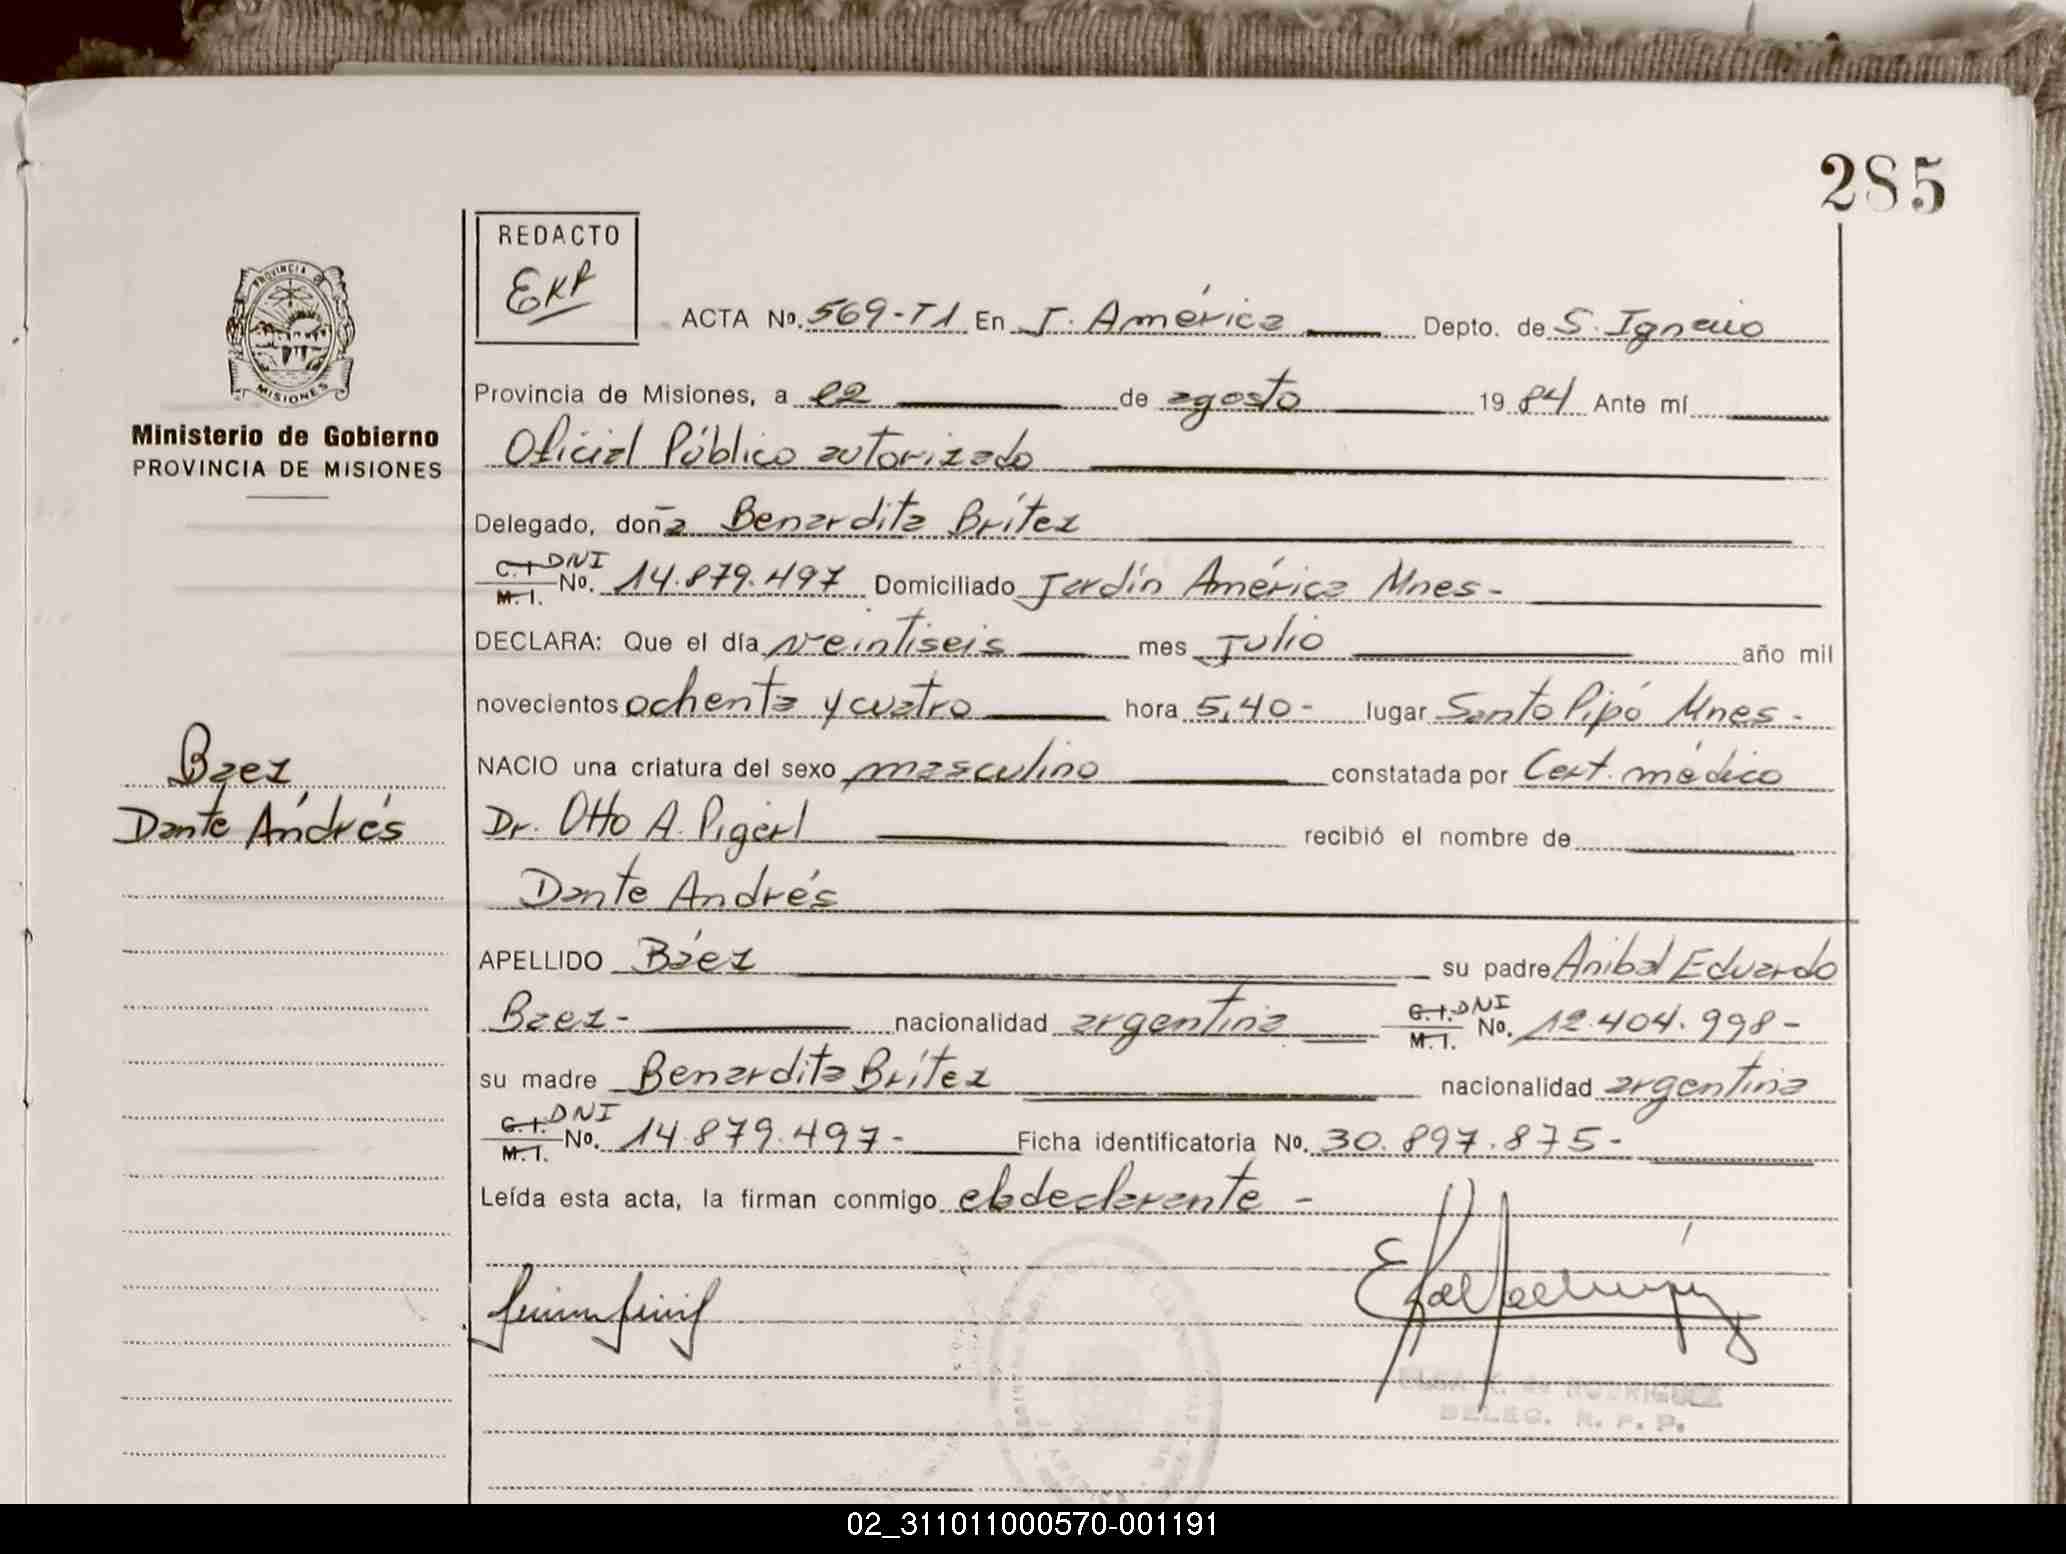 285
REDACTO
EKR
ACTA Nº. 569-T1 En J. América Depto. de S. Ignacio
PROVINCIA DE
MISIONES
Provincia de Misiones, a 22 de agosto 1984 Ante mí
Ministerio de Gobierno
PROVINCIA DE MISIONES
Oficial Público autorizado
Delegado, doña Benardita Brítez
C.I. DNI
M.I. No. 14.879.497 Domiciliado Jardín América Mnes-
DECLARA: Que el día veintiseis mes Julio año mil
novecientos ochenta y cuatro hora 5,40- lugar Santo Pipó Mnes-
Baez
Dante Andrés
NACIO una criatura del sexo masculino constatada por Cert. médico
Dr. Otto A. Pigerl recibió el nombre de
Dante Andrés
APELLIDO Báez su padre Anibal Eduardo
Baez- nacionalidad argentina C.I. DNI
M.I. No. 12.404.998-
su madre Benardita Brítez nacionalidad argentina
C.I. DNI
M.I. No. 14.879.497- Ficha identificatoria No. 30.897.875-
Leída esta acta, la firman conmigo el declarante -
ELSA K. de RODRIGUEZ
DELEG. R. P. P.
02_311011000570-001191